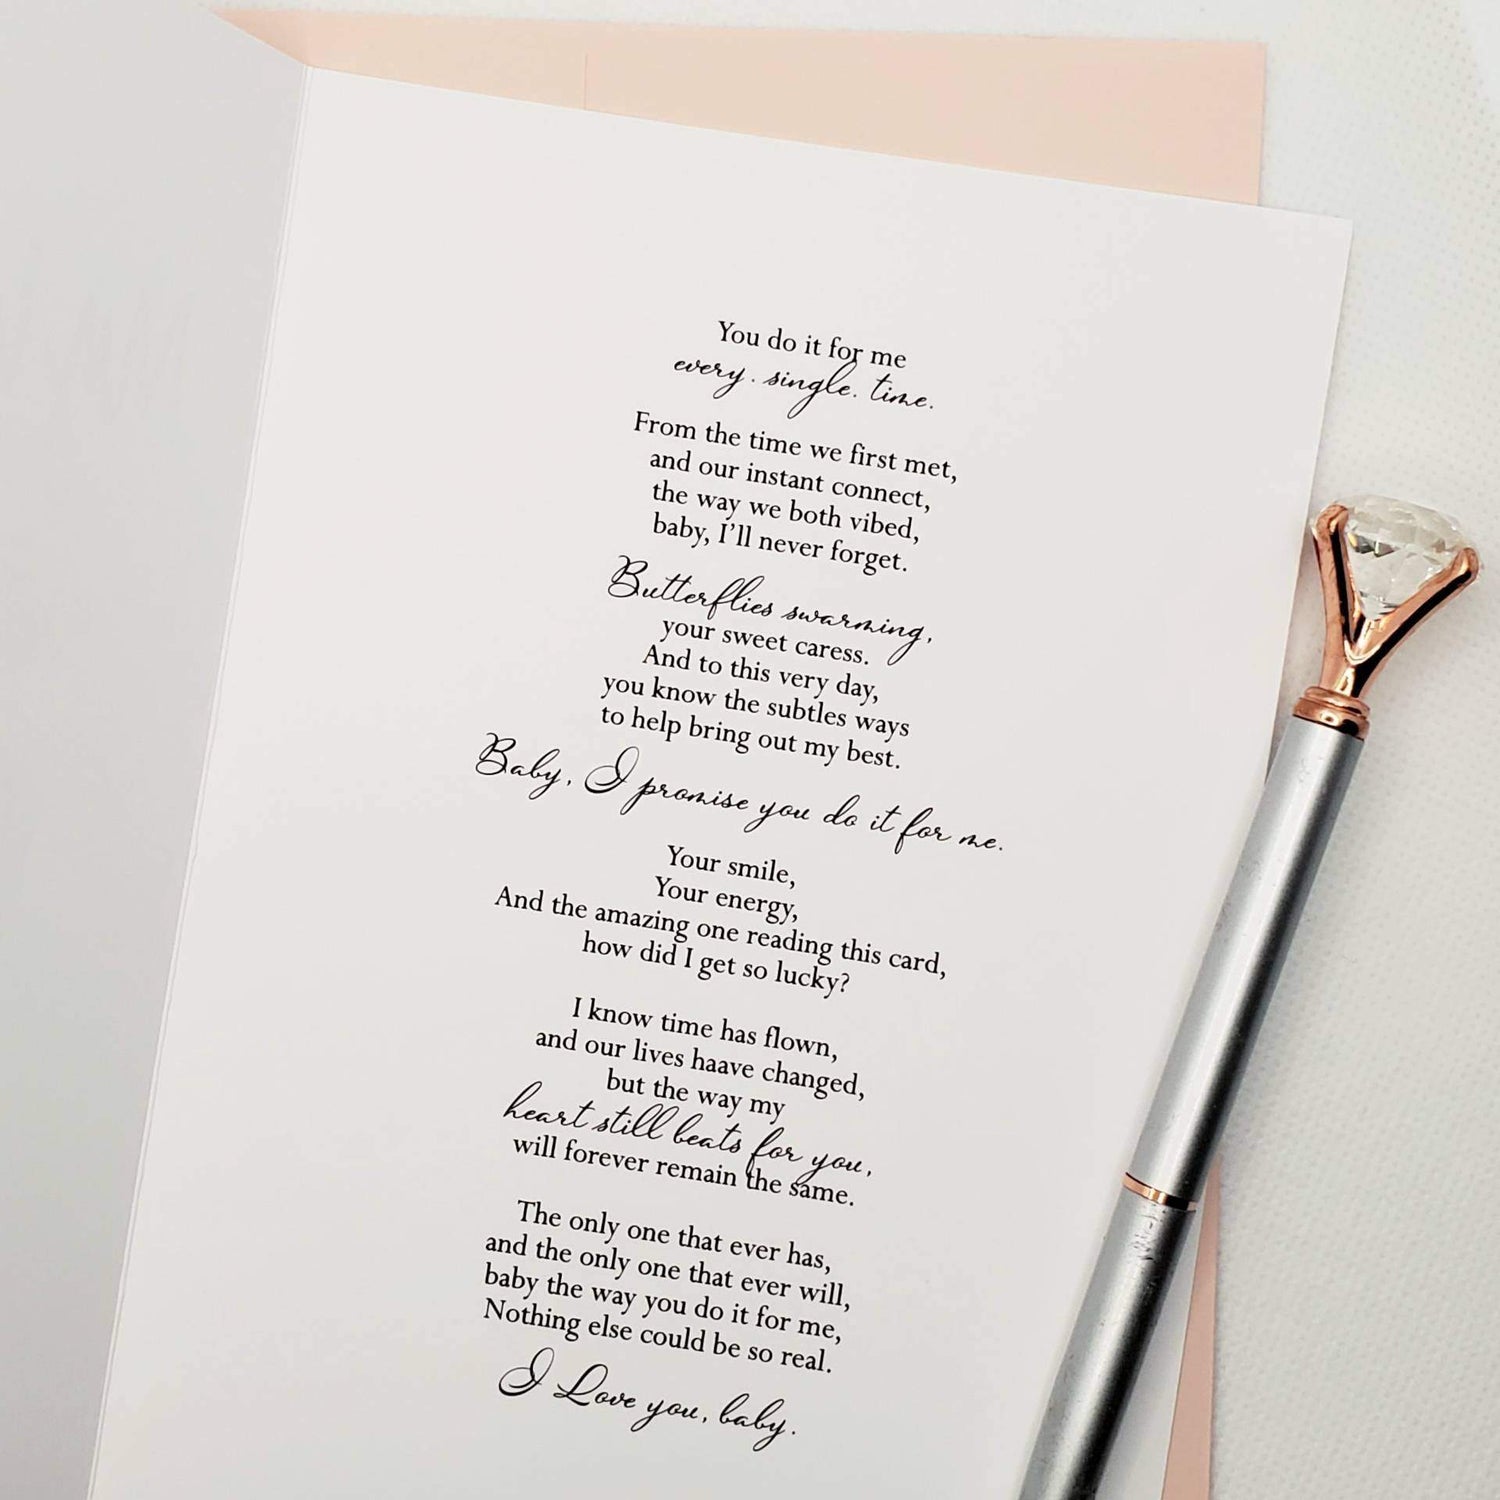 You do it for me
every. single. time.
From the time we first met,
and our instant connect,
the way we both vibed,
baby, I'll never forget.
Butterflies swarming,
your sweet caress.
And to this very day,
you know the subtles ways
to help bring out my best.
Baby, I promise you do it for me.
Your smile,
Your energy,
And the amazing one reading this card,
how did I get so lucky?
I know time has flown,
and our lives haave changed,
but the way my
heart still beats for you,
will forever remain the same.
The only one that ever has,
and the only one that ever will,
baby the way you do it for me,
Nothing else could be so real.
I Love you, baby.